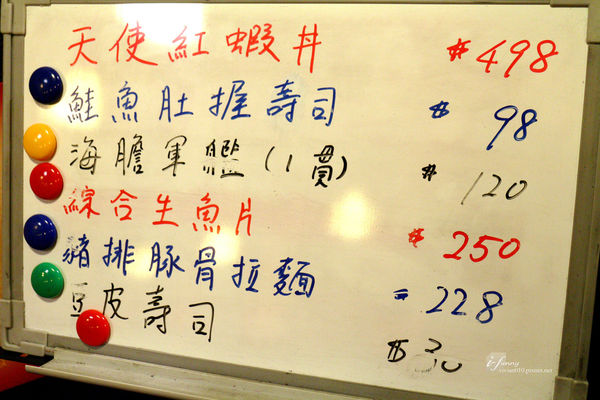 天使紅蝦丼 $498
鮭魚肚握壽司 $98
海膽軍艦(1貫) $120
綜合生魚片 $250
豬排豚骨拉麵 $228
豆皮壽司 $30
i-Funny